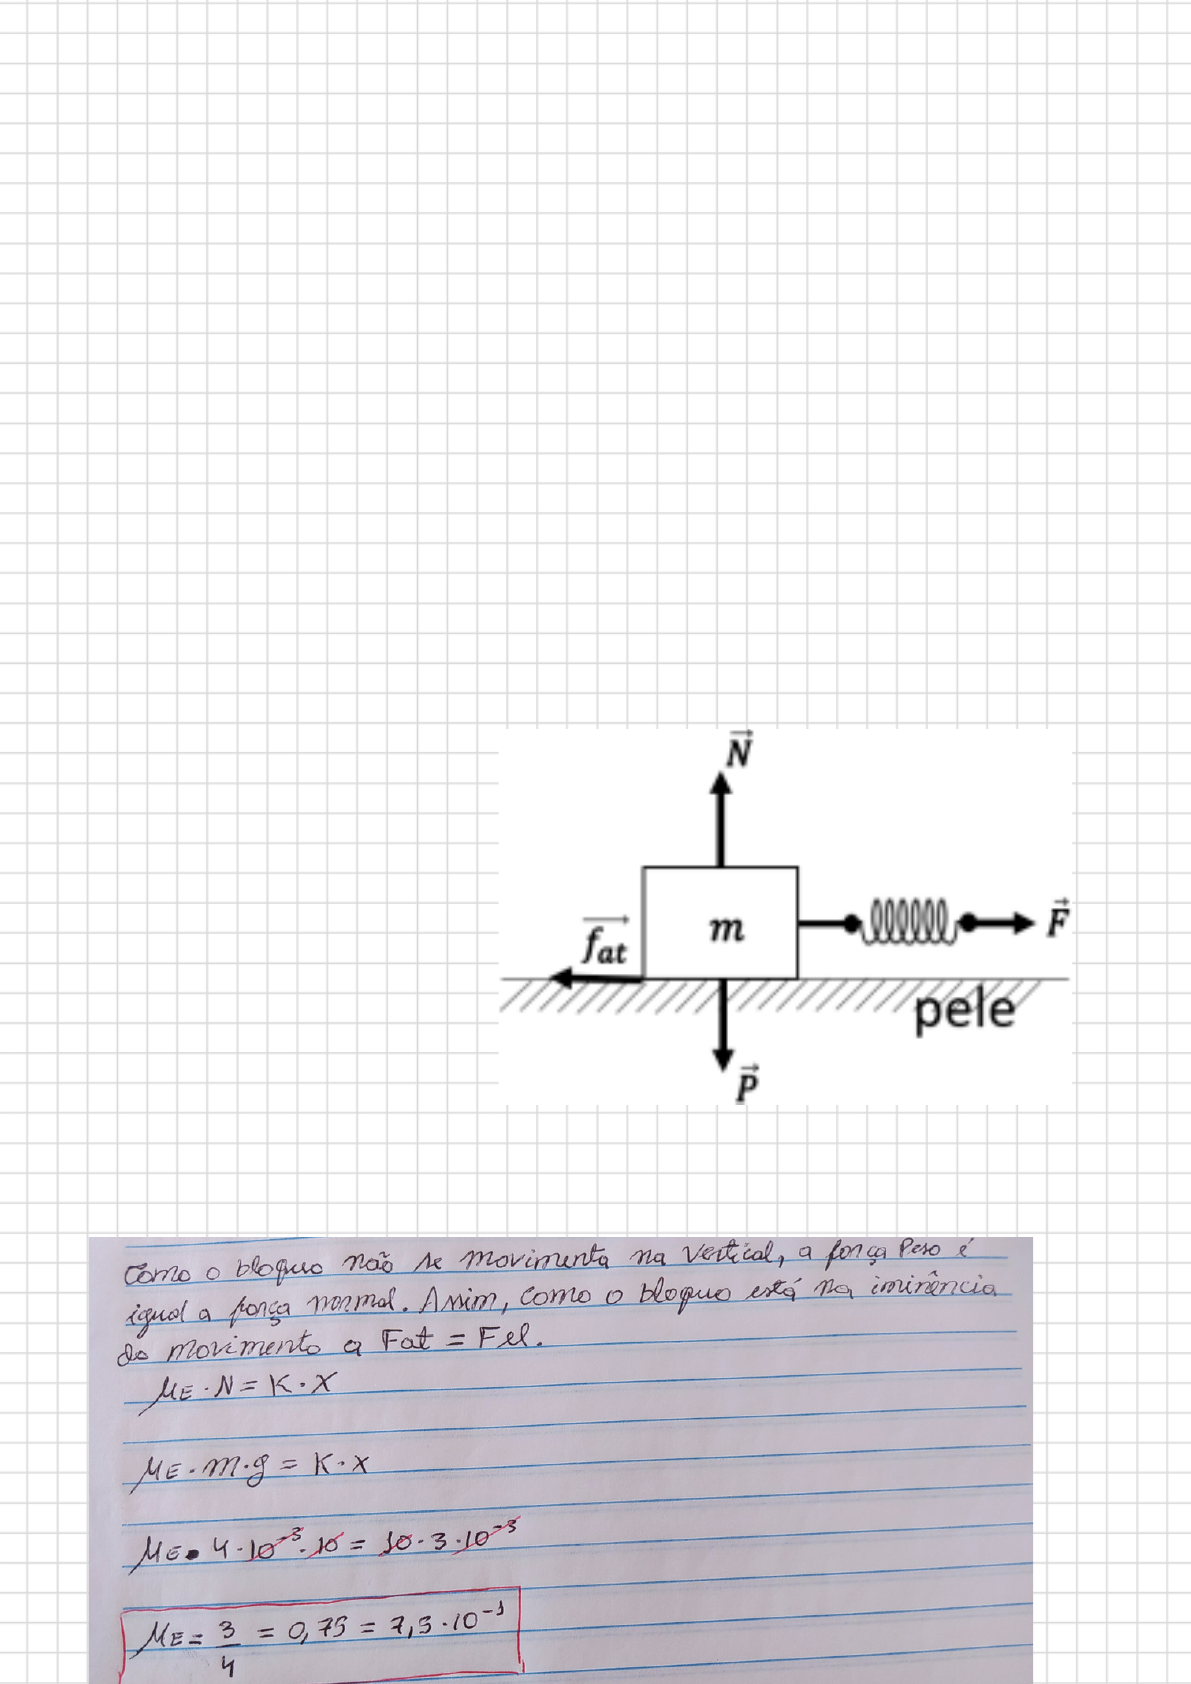 N
m
fat
F
pele
P
Como o bloquo não se movimenta na vertical, a força Peso é
igual a força normal. Assim, como o bloquo está na iminência
do movimento a Fat = Fel.
μE · N = K · X
μE · m · g = K · x
μE • 4 · 10⁻³ · 10 = 10 · 3 · 10⁻³
μE = 3/4 = 0,75 = 7,5 · 10⁻¹